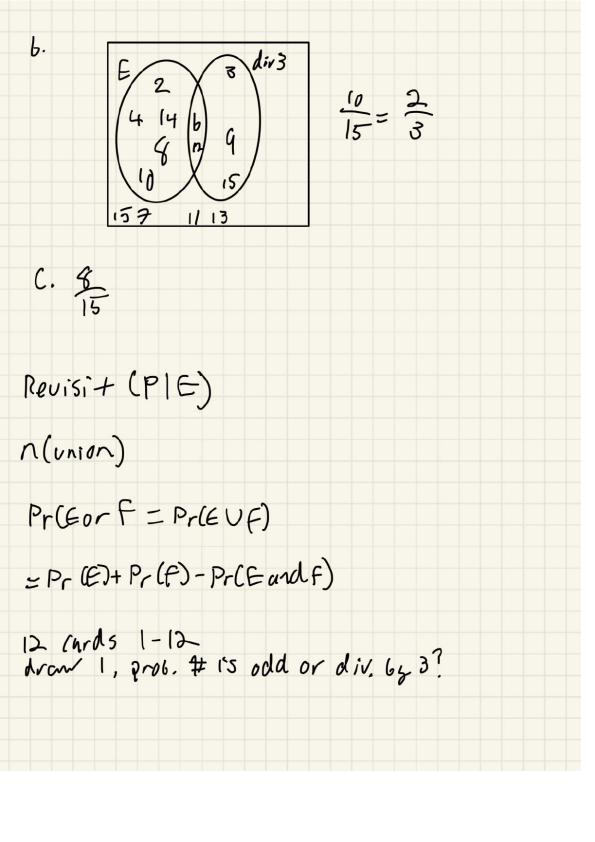 b.
E
div 3
2
3
4 14 6
12
8
9
10
15
1 5 7 11 13
10/15 = 2/3
C. 8/15
Revisit (P|E)
n(union)
Pr(E or F = Pr(E ∪ F)
= Pr (E) + Pr (F) - Pr(E and F)
12 cards 1-12
draw 1, prob. # is odd or div. by 3?